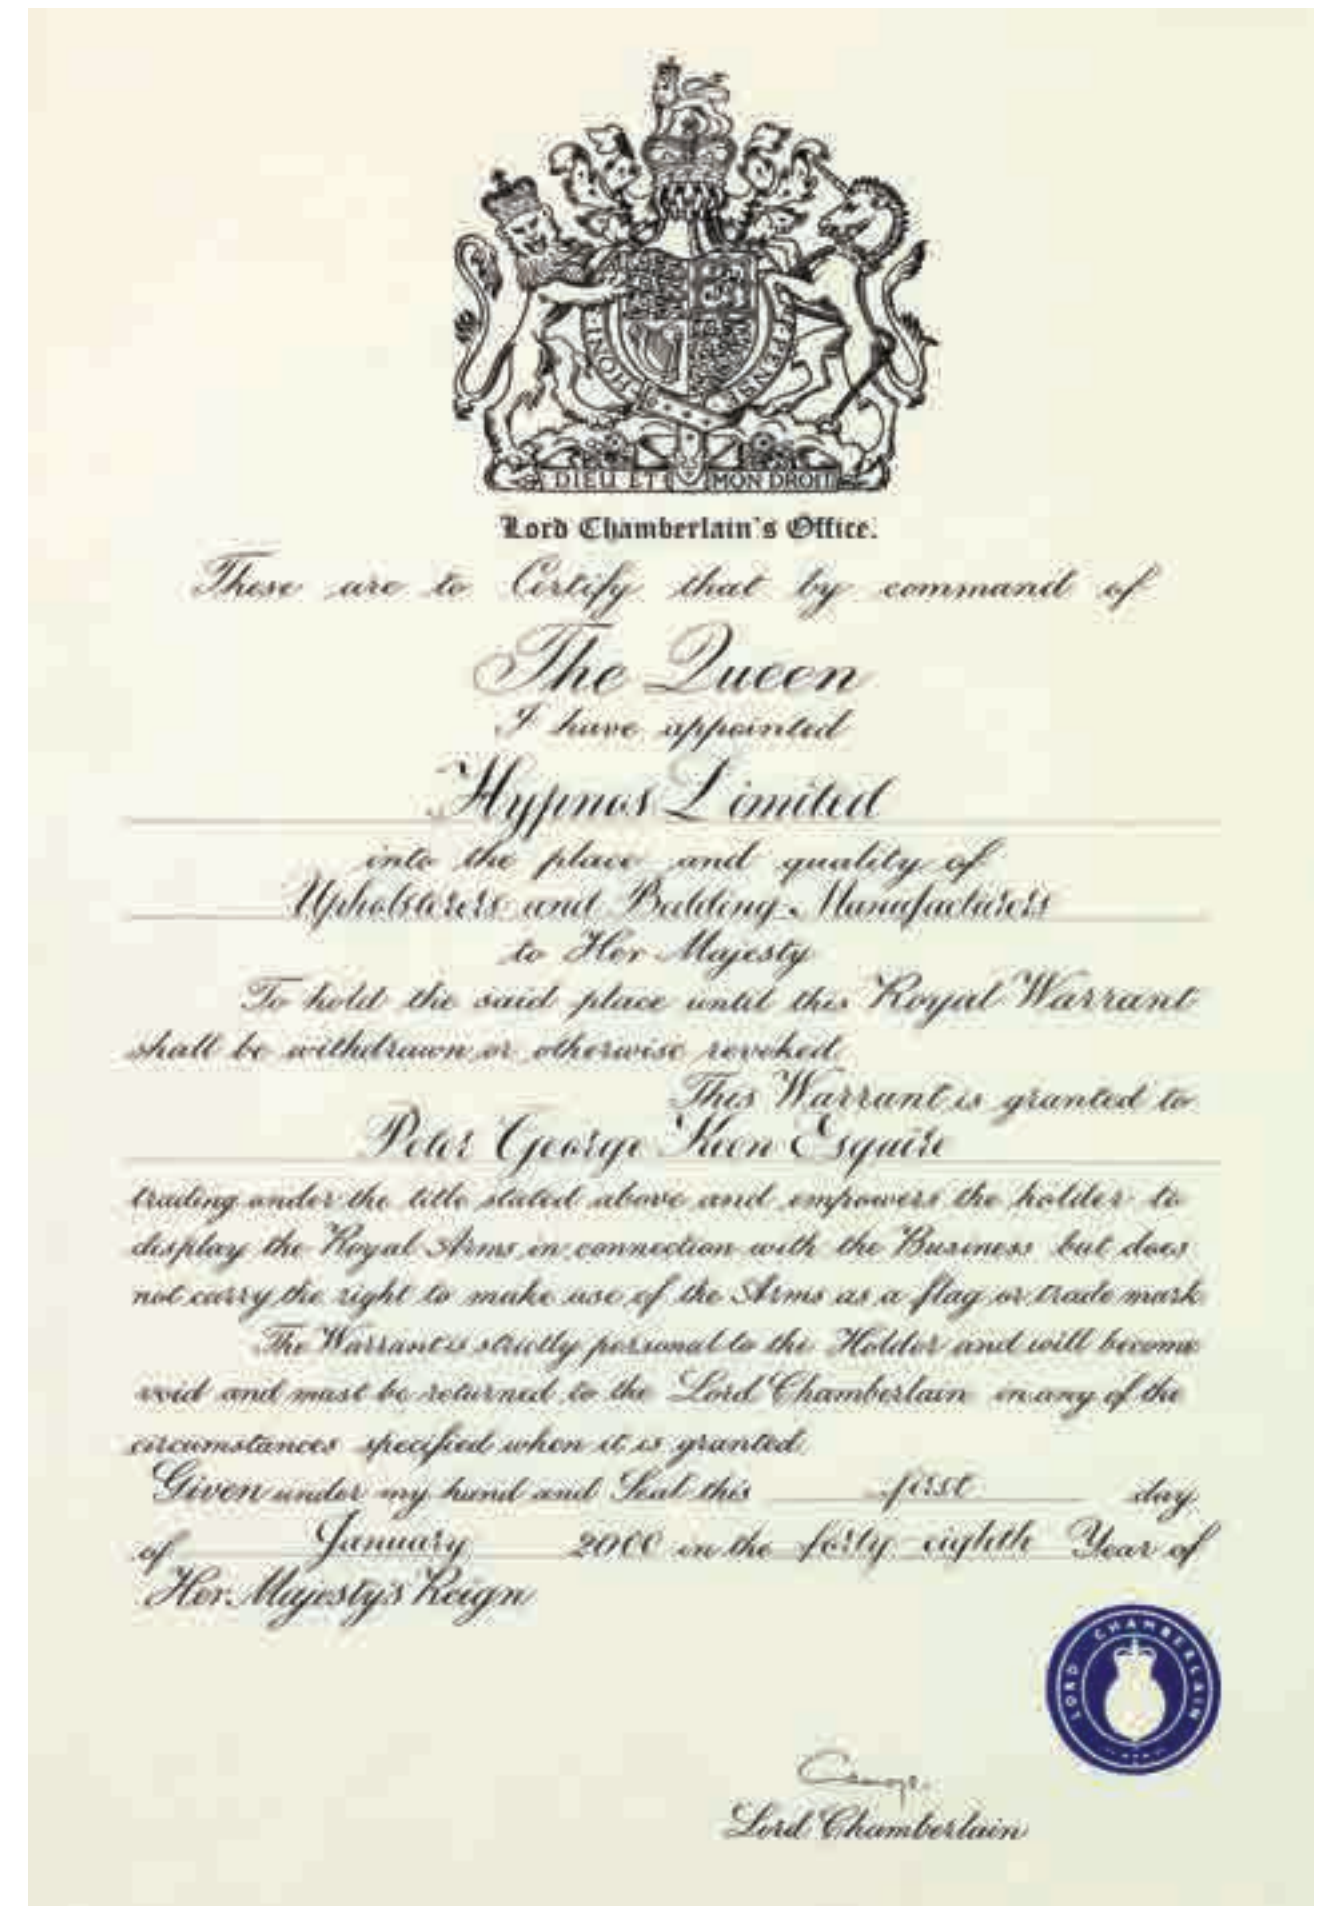 HONI
PENSE
DIEU ET MON DROIT
Lord Chamberlain's Office.
These are to Certify that by command of
The Queen
I have appointed
Hypnos Limited
into the place and quality of
Upholsterers and Bedding Manufacturers
to Her Majesty
To hold the said place until this Royal Warrant
shall be withdrawn or otherwise revoked.
This Warrant is granted to
Peter George Keen Esquire
trading under the title stated above and empowers the holder to
display the Royal Arms in connection with the Business but does
not carry the right to make use of the Arms as a flag or trade mark
The Warrant is strictly personal to the Holder and will become
void and must be returned to the Lord Chamberlain in any of the
circumstances specified when it is granted.
Given under my hand and Seal this first day
of January 2000 in the forty-eighth Year of
Her Majesty's Reign
LORD CHAMBERLAIN
Lord Chamberlain